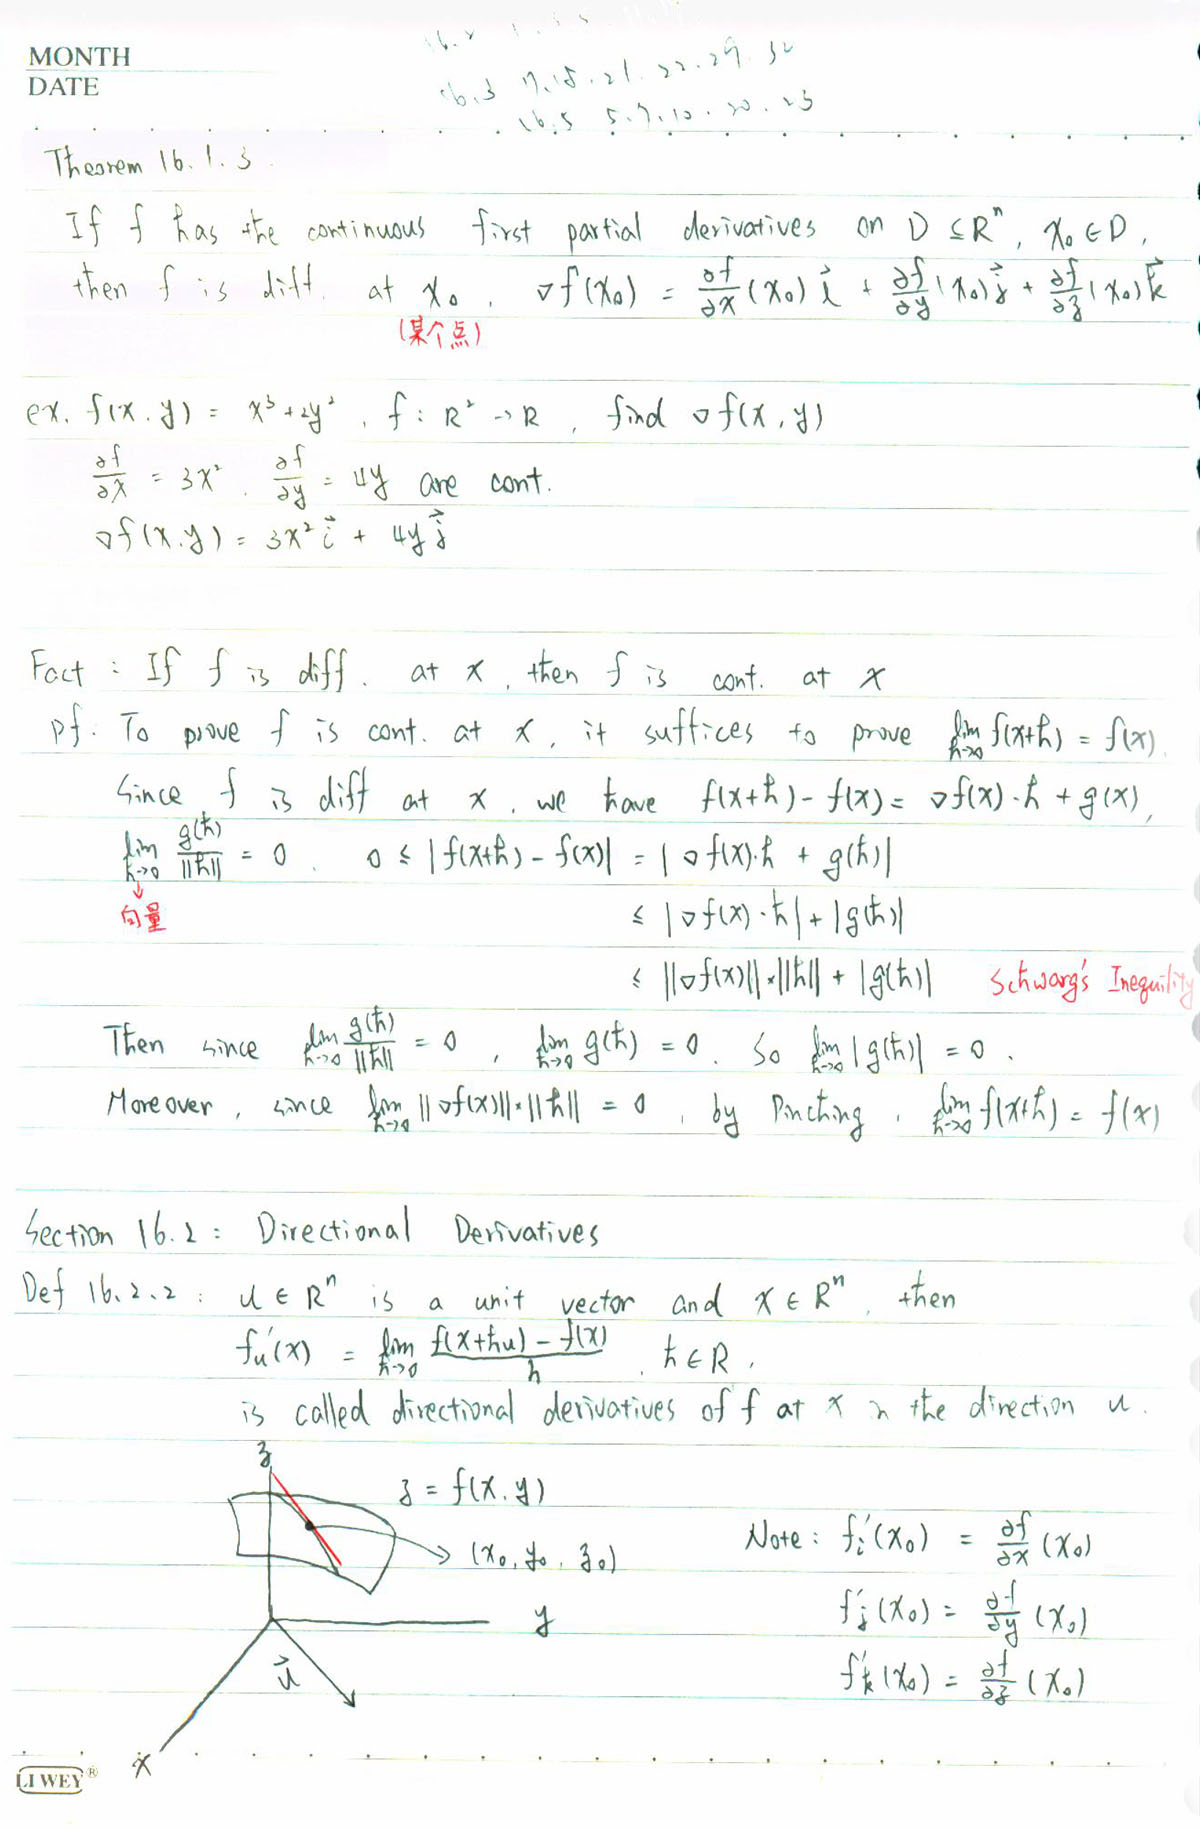 MONTH
DATE
16.3 7.15.21.22.29.
16.5 5.7.10.20.23
Theorem 16.1.3
If f has the continuous first partial derivatives on D ⊆ Rⁿ, x₀ ∈ D,
then f is diff. at x₀, ∇f(x₀) = ∂f/∂x (x₀) i⃗ + ∂f/∂y (x₀) j⃗ + ∂f/∂z (x₀) k⃗
(某个点)
ex. f(x.y) = x³+2y², f : R² → R, find ∇f(x,y)
∂f/∂x = 3x². ∂f/∂y = 4y are cont.
∇f(x.y) = 3x² i⃗ + 4y j⃗
Fact : If f is diff. at x, then f is cont. at x
pf. To prove f is cont. at x, it suffices to prove lim h→0 f(x+h) = f(x).
Since f is diff at x, we have f(x+h) - f(x) = ∇f(x)·h + g(x),
lim h→0 g(h)/||h|| = 0. 0 ≤ |f(x+h) - f(x)| = |∇f(x)·h + g(h)|
向量
≤ |∇f(x)·h| + |g(h)|
≤ ||∇f(x)||·||h|| + |g(h)| Schwarg's Inequility
Then since lim h→0 g(h)/||h|| = 0, lim h→0 g(h) = 0. So lim h→0 |g(h)| = 0.
Moreover, since lim h→0 ||∇f(x)||·||h|| = 0, by Pinching, lim h→0 f(x+h) = f(x)
Section 16.2 : Directional Derivatives
Def 16.2.2 : u ∈ Rⁿ is a unit vector and x ∈ Rⁿ, then
fu'(x) = lim h→0 f(x+hu) - f(x)/h. h ∈ R,
is called directional derivatives of f at x in the direction u.
z
z = f(x.y)
(x₀, y₀, z₀)
Note : fi'(x₀) = ∂f/∂x (x₀)
y
fj'(x₀) = ∂f/∂y (x₀)
u⃗
fk'(x₀) = ∂f/∂z (x₀)
x
LI WEY®